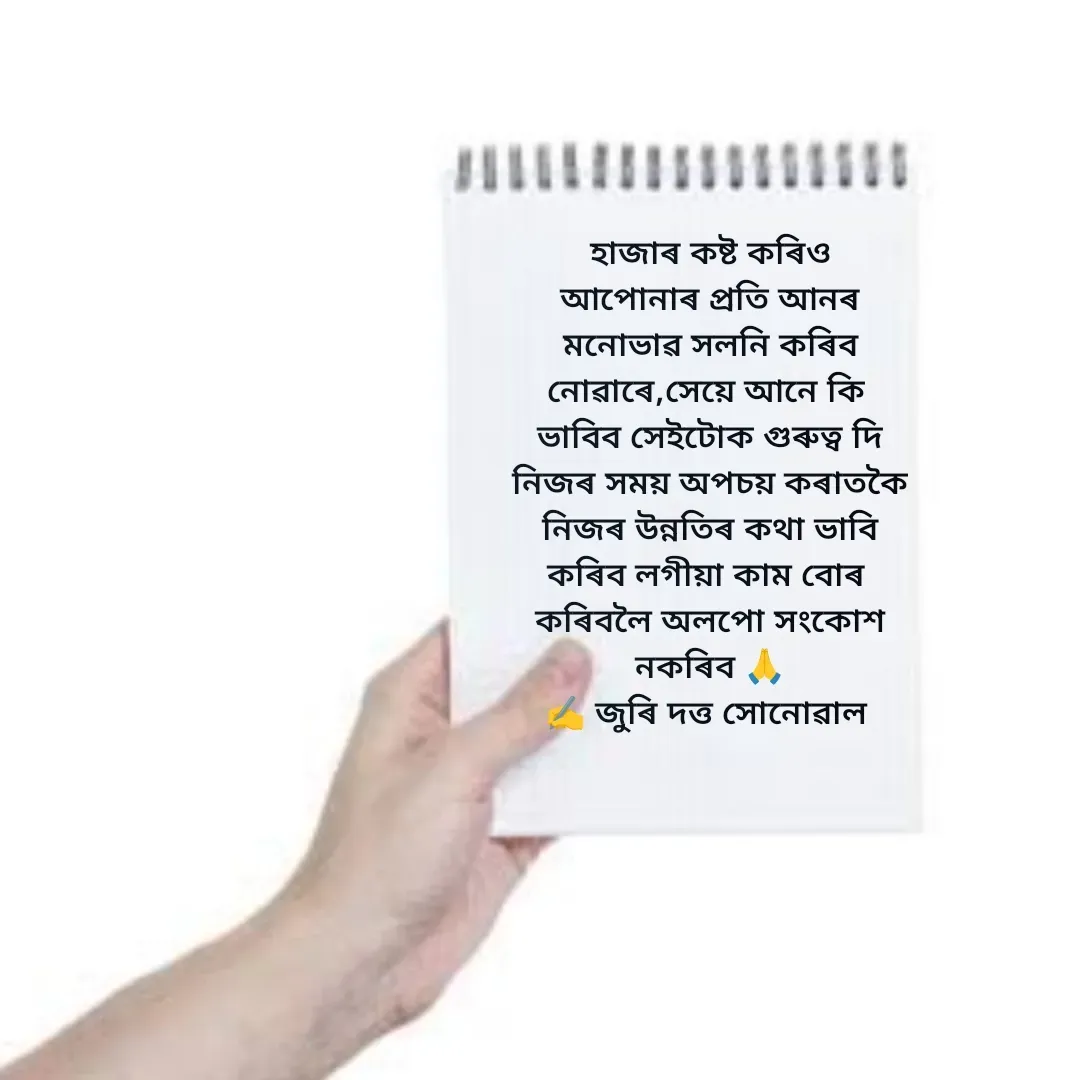 হাজাৰ কষ্ট কৰিও
আপোনাৰ প্ৰতি আনৰ
মনোভাৱ সলনি কৰিব
নোৱাৰে,সেয়ে আনে কি
ভাবিব সেইটোক গুৰুত্ব দি
নিজৰ সময় অপচয় কৰাতকৈ
নিজৰ উন্নতিৰ কথা ভাবি
কৰিব লগীয়া কাম বোৰ
কৰিবলৈ অলপো সংকোশ
নকৰিব 🙏
✍️ জুৰি দত্ত সোনোৱাল